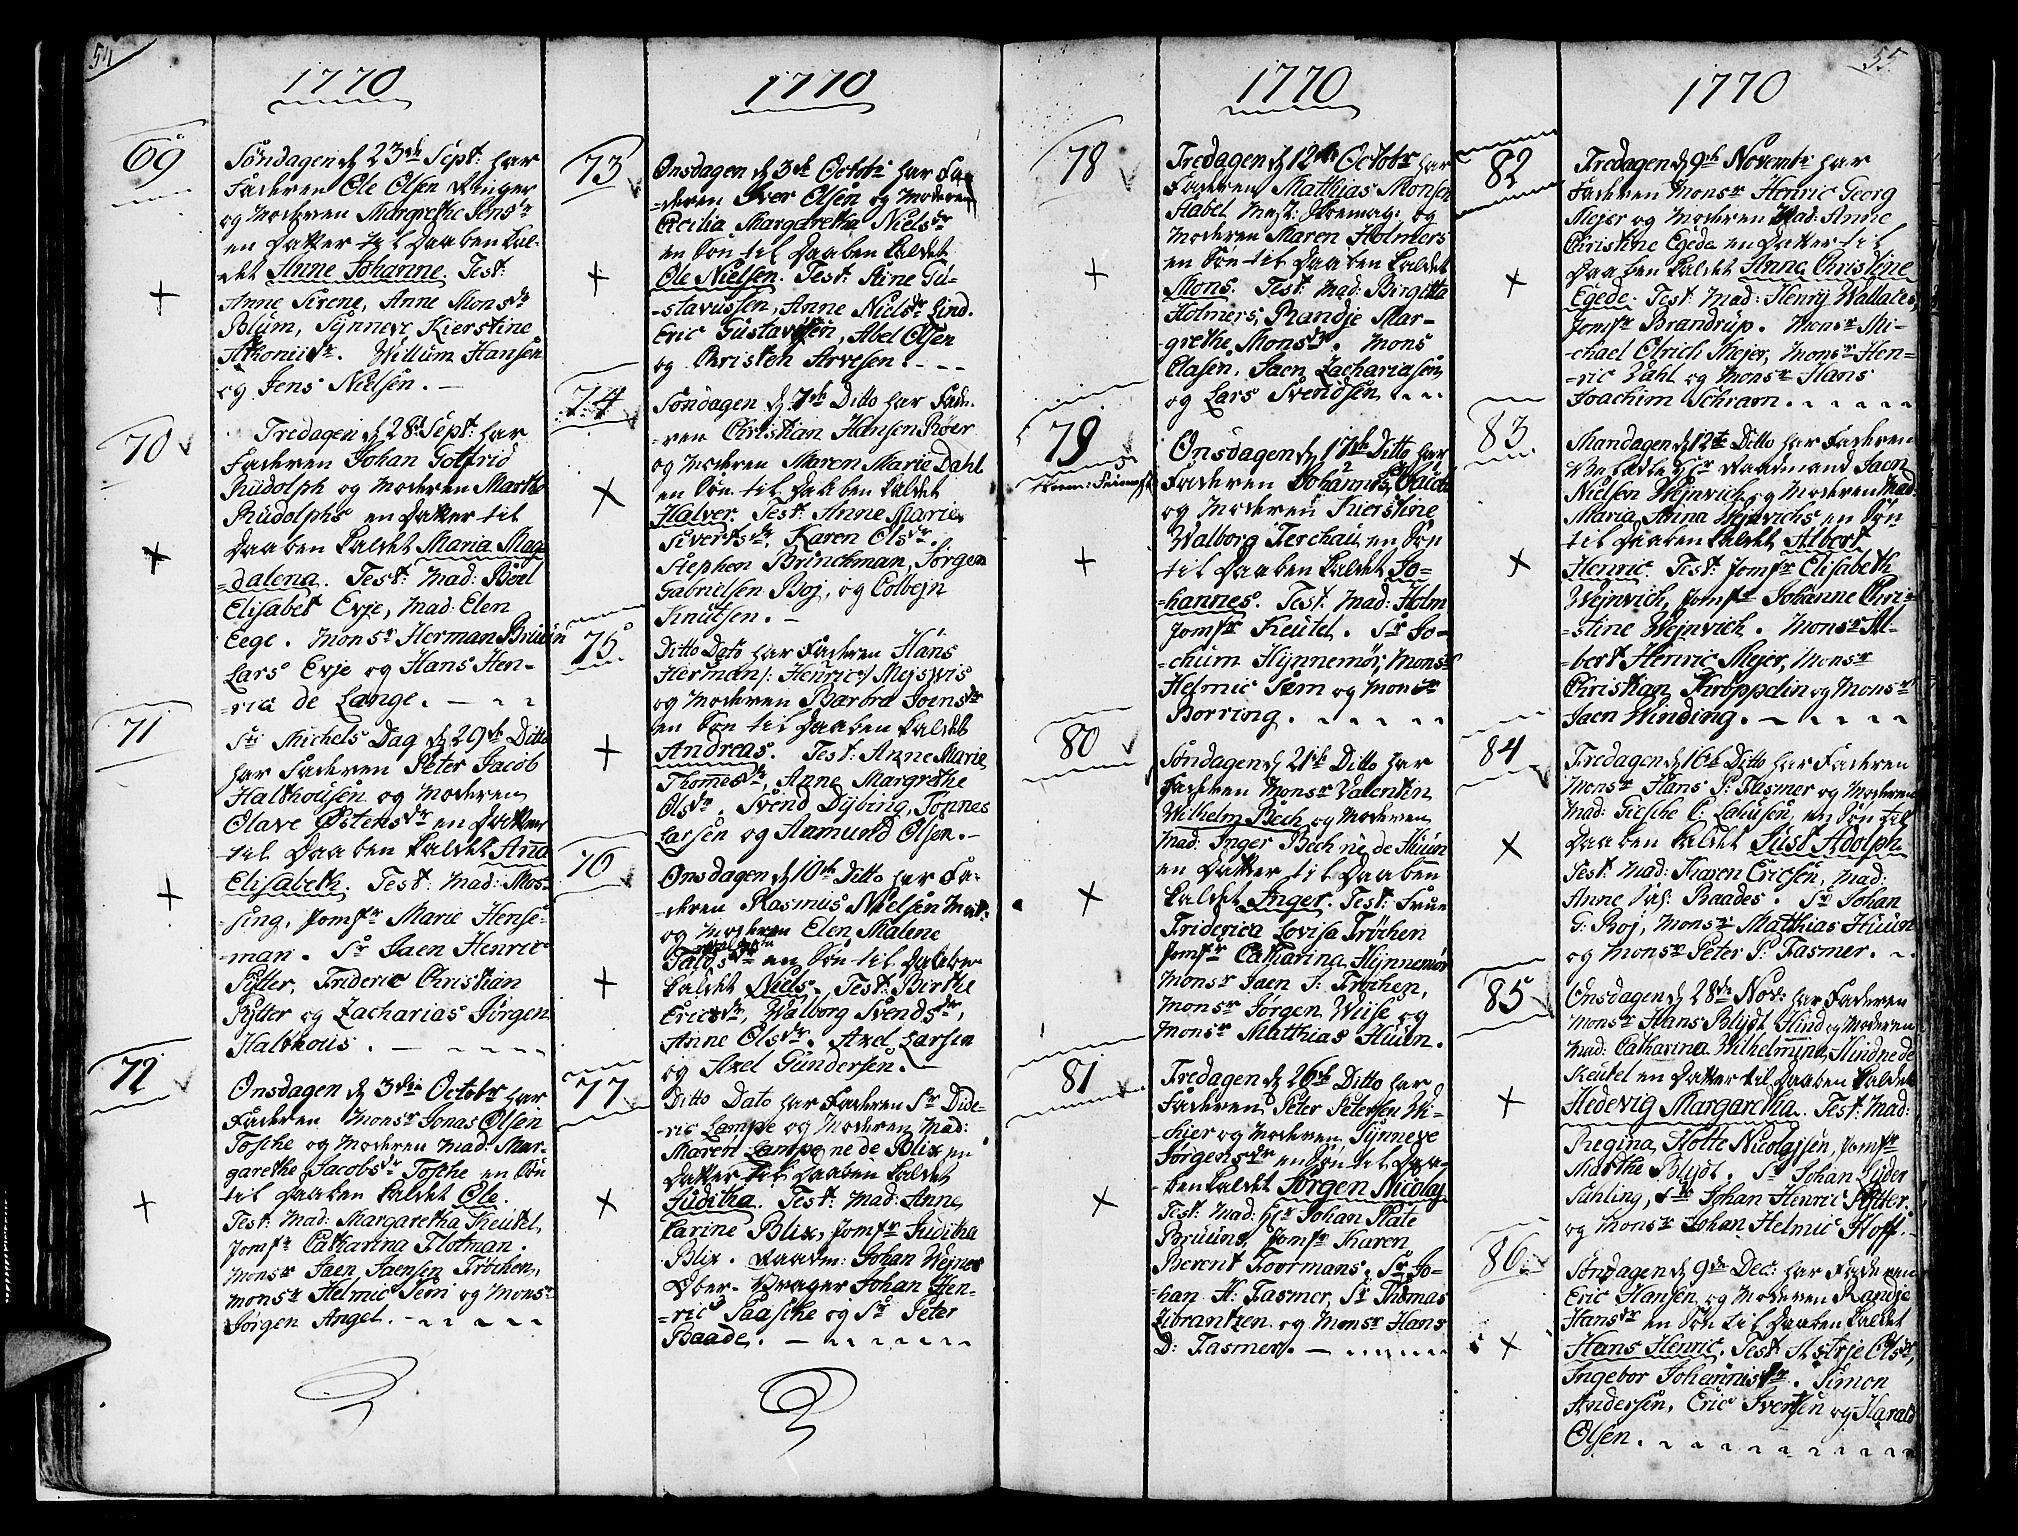 54
1770
69
Søndagen d 23de Sept: har
Faderen Ole Olsen
og Moderen Margrethe Jensdr
en Datter til Daaben kal-
det Anne Johanne. Test:
Anne Sirene, Anne Monsdr
Blum, Synneve Kierstine
Willum Hansen
og Jens Nielsen.
70
Fredagen d 28de Sept: har
Faderen Johan Gotfrid
Rudolph og Moderen Marthe
Rudolphs en Datter til
Daaben kaldet Maria Mag-
=dalena. Test: Mad: Boel
Elisabet Evje, Mad: Elen
Eege. Monsr Herman Bruun
Lars Evje og Hans Hen-
=rich de Lange.
71
St: Michels Dag d 29de Ditto
har Faderen Peter Jacob
Halthousen og Moderen
Olave Østensdr en Datter
til Daaben kaldet Anna
Elisabeth. Test: Mad: Mos-
sing, Jomfr Marie Hense-
man. Sr Jaen Henric
Pytter, Frideric Christian
Pytter og Zacharias Jørgen
Halthous.
72
Onsdagen d 3de Octobr har
Faderen Monsr Jonas Olsen
Tosche og Moderen Mad: Mar-
garethe Jacobsdr Tosche en Søn
til Daaben kaldet Ole.
Test: Mad: Margaretha Keutel,
Jomfr Catharina Flotman.
Monsr Jaen Jaensen Frøchen,
Monsr Helmic Sem og Monsr
Jørgen Angel.
1770
73
Onsdagen d 3de Octobr har Fa-
=deren Iver Olsen og Moderen
Cicilia Margaretha Nielsdr
en Søn til Daaben kaldet
Ole Nielsen. Test: Stine Gu-
-stavussen, Anne Nielsdr Hind.
Eric Gustavussen, Abel Olsen
og Christen Arvesen.
74
Søndagen d 7de Ditto har Fade-
-ren Christian Hansen Røer
og Moderen Maren Marie Dahl
en Søn til Daaben kaldet
Halver. Test: Anne Marie
Sivertsdr, Karen Olsdr.
Stephen Brinckman, Jørgen
Gabrielsen Boj, og Colbejn
Knutsen.
75
Ditto Dato har Faderen Hans
Herman /: Henric :/ Mejsvis
og Moderen Barbra Joensdr
en Søn til Daaben kaldet
Andreas. Test: Anne Marie
Thomesdr, Anne Margrethe
Olsdr. Svend Dybing, Tønnes
Larsen og Aamund Olsen.
76
Onsdagen d 10de Ditto har Fa-
-deren Rasmus Nielsen Mat:
og Moderen Elen Malene
en Søn til Daaben
kaldet Niels. Test: Birthe
Ericsdr, Walborg Svendsdr,
Anne Olsdr. Axel Larsen
og Axel Gundersen.
77
Ditto Dato har Faderen Sr Dide-
-ric Lampe og Moderen Mad:
Maren Lampe ne de Blix en
Datter til Daaben kaldet
Juditha. Test: Mad: Anne
Carine Blix, Jomfr Juditha
Blix. Raadm: Johan Wejner
Ober-Vrager Johan Hen-
=ric Paasche og Sr Peter
Baade.
1770
78
Fredagen d 12te Octobr har
Faderen Matthias Monsen
Stabel Mest: Skoemag: og
Moderen Maren Holmers
en Søn til Daaben kaldet
Mons. Test: Mad: Birgitta
Holmers, Randje Mar-
grethe Monsdr. Mons
Clasen, Jaen Zachariasen
og Lars Svendsen
79
Onsdagen d 17de Ditto har
Faderen Johannes
og Moderen Kierstine
Walborg Terchau en Søn
til Daaben kaldet Jo-
=hannes. Test: Mad: Holm
Jomfr Keutel. Sr Jo-
-chum Hynnemør, Monsr
Helmic Sem og Monsr
Borring.
80
Søndagen d 21de Ditto har
Faderen Monsr Valentin
Wilhelm Bech og Moderen
Mad: Inger Bech ne de Huun
en Datter til Daaben
kaldet Inger. Test: Frue
Friderica Lovisa Frøchen
Jomfr Catharina Hynnemør
Monsr Jaen J: Frøchen,
Monsr Jørgen Wiise og
Monsr Matthias Huun.
81
Fredagen d 26de Ditto har
Faderen Peter Petersen Vi-
-kier og Moderen Synneve
Jørgensdr en Søn til Daa-
-ben kaldet Jørgen Nicolaj
Test: Mad: Hr Johan Plate
Bruuns, Jomfr Karen
Berent Foormans. Sr Jo-
-han H: Fasmer, Sr Thomas
Zibrantzen og Monsr Hans
D: Fasmer.
55
1770
82
Fredagen d 9de Novembr har
Faderen Monsr Henric Georg
Mejer og Moderen Mad: Anne
Christine Egede en Datter til
Daaben kaldet Anna Christine
Egede. Test: Mad: Henrij Wallaces,
Jomfr Brandrup. Monsr Mi-
-chael Olrich Mejer, Monsr Hen=
=ric Dahl og Monsr Hans
Joachim Schram.
83
Mandagen d 12te Ditto har Faderen
Hr Raadmand Jaen
Nielsen Wejnvich og Moderen Mad:
Maria Anna Wejnvichs en Søn
til Daaben kaldet Albert
Henric. Test: Jomfr Elisabeth
Wejnvich, Jomfr Johanne Chri-
-stine Wejnvich. Monsr Al-
-bert Henric Mejer, Monsr
Christian Krøppelin og Monsr
Jaen Winding.
84
Fredagen d 16de Ditto har Faderen
Monsr Hans P: Fasmer og Moderen
Mad: Giesche C: Lahusen, en Søn til
Daaben kaldet Just Adolph
Test: Mad: Karen Ericsen, Mad:
Anne Baades. Sr Johan
G: Boj, Monsr Matthias Huun
og Monsr Peter P: Fasmer.
85
Onsdagen d 28de Nov: har Faderen
Monsr Hans Blydt Hind og Moderen
Mad: Catharina Wilhelmina Hind ne de
Keutel en Datter til Daaben kaldet
Hedevig Margaretha. Test: Mad:
Regina Holte Nicolajsen, Jomfr
Marthe Blydt. Sr Johan Lyder
Suhling, Sr Johan Henric Pytter.
og Monsr Johan Helmic Hoff.
86
Søndagen d 9de Dec: har Faderen
Eric Hansen og Moderen Randje
Hansdr en Søn til Daaben kaldet
Hans Henric. Test: Olsdr,
Ingebor Johannisdr. Simon
Andersen, Eric Iversen og Harald
Olsen.